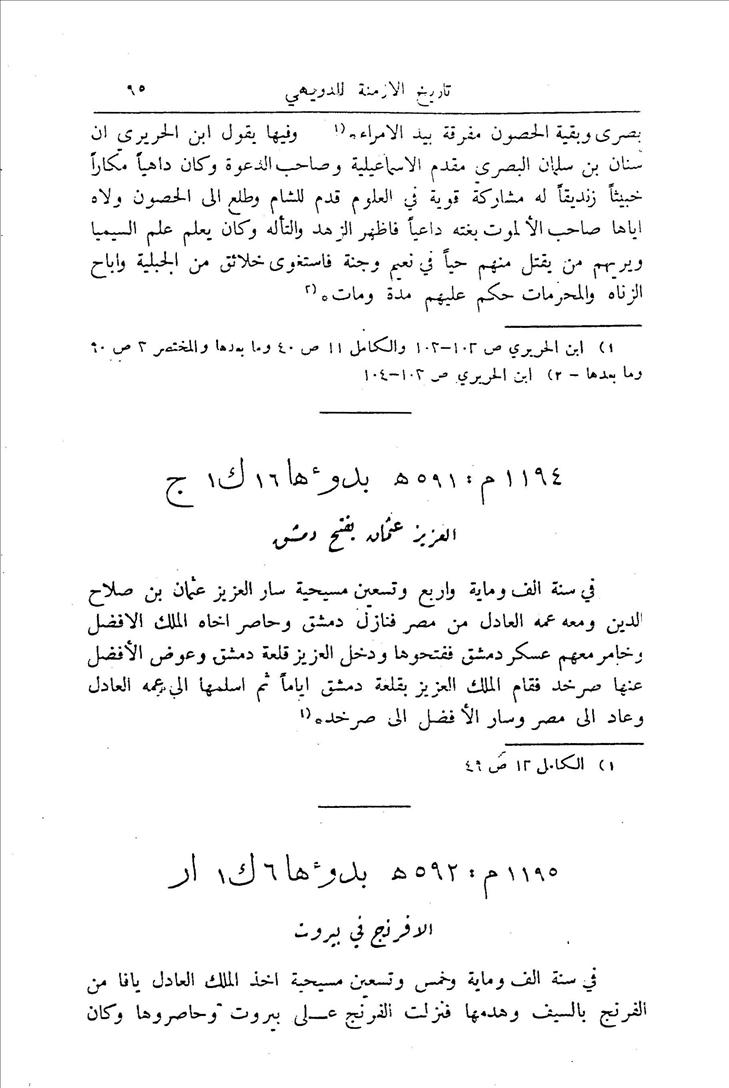 تاريخ الازمنة للدويهي ٩٥
بصرى وبقية الحصون مفرقة بيد الامراء٠(١ وفيها يقول ابن الحريري ان
سنان بن سلمان البصري مقدم الاسماعيلية وصاحب الدعوة وكان داهياً مكاراً
خبيثاً زنديقاً له مشاركة قوية في العلوم قدم للشام وطلع الى الحصون ولاه
اياها صاحب الألموت بغته داعياً فاظهر الزهد والتأله وكان يعلم علم السيميا
ويريهم من يقتل منهم حياً في نعيم وجنة فاستغوى خلائق من الجبلية واباح
الزناه والمحرمات حكم عليهم مدة ومات٠(٢
١) ابن الحريري ص ١٠٢–١٠٣ والكامل ١١ ص ٤٠ وما بعدها والمختصر ٣ ص ٦٠
وما بعدها – ٢) ابن الحريري ص ١٠٣–١٠٤
١١٩٤ م : ٥٩١ ه بدوءها ١٦ ك ١ ج
العزيز عثمان يفتح دمشق
في سنة الف وماية واربع وتسعين مسيحية سار العزيز عثمان بن صلاح
الدين ومعه عمه العادل من مصر فنازل دمشق وحاصر اخاه الملك الافضل
وخامر معهم عسكر دمشق ففتحوها ودخل العزيز قلعة دمشق وعوض الأفضل
عنها صرخد فقام الملك العزيز بقلعة دمشق اياماً ثم اسلمها الى عمه العادل
وعاد الى مصر وسار الأفضل الى صرخد٠(١
١) الكامل ١٢ ص ٤٩
١١٩٥ م : ٥٩٢ ه بدوءها ٦ ك ١ ار
الافرنج في بيروت
في سنة الف وماية وخمس وتسعين مسيحية اخذ الملك العادل يافا من
الفرنج بالسيف وهدمها فنزلت الفرنج عـــلى بيروت وحاصروها وكان